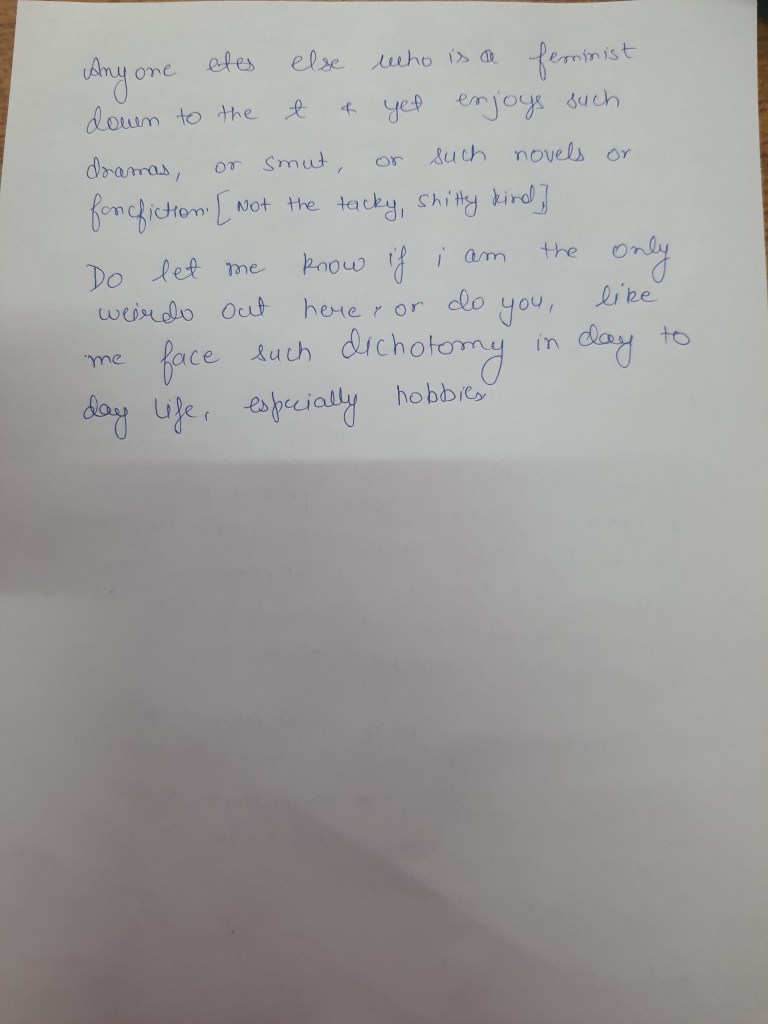 Any one etes else who is a feminist
down to the t & yet enjoys such
dramas, or smut, or such novels or
fancfiction. [Not the tacky, shitty kind]
Do let me know if i am the only
weirdo out here, or do you, like
me face such dichotomy in day to
day life, especially hobbies